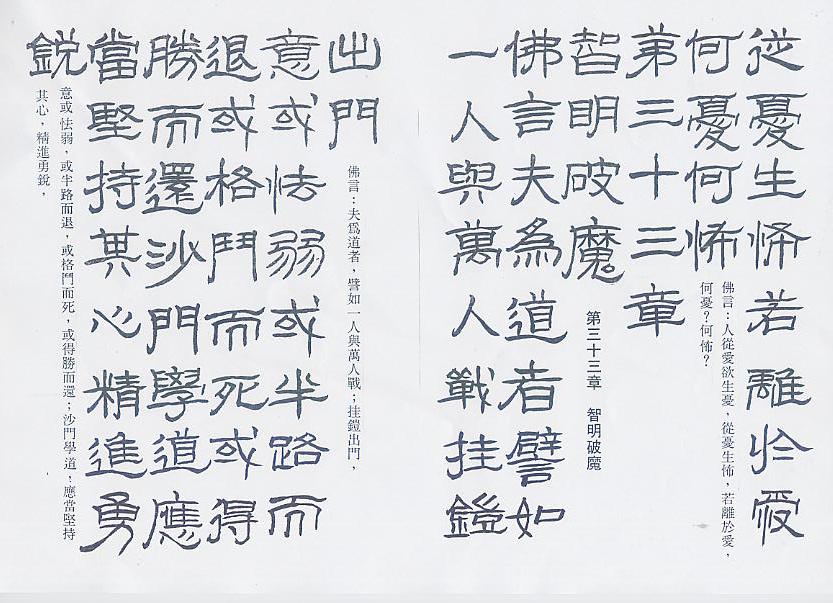 從憂生怖若離於愛
何憂何怖
佛言：人從愛欲生憂，從憂生怖，若離於愛，
何憂？何怖？
第三十三章
智明破魔
第三十三章　智明破魔
佛言夫為道者譬如
一人與萬人戰挂鎧
出門
佛言：夫爲道者，譬如一人與萬人戰；挂鎧出門，
意或怯弱或半路而
退或格鬥而死或得
勝而還沙門學道應
當堅持其心精進勇
銳
意或怯弱，或半路而退，或格鬥而死，或得勝而還；沙門學道，應當堅持
其心，精進勇銳，